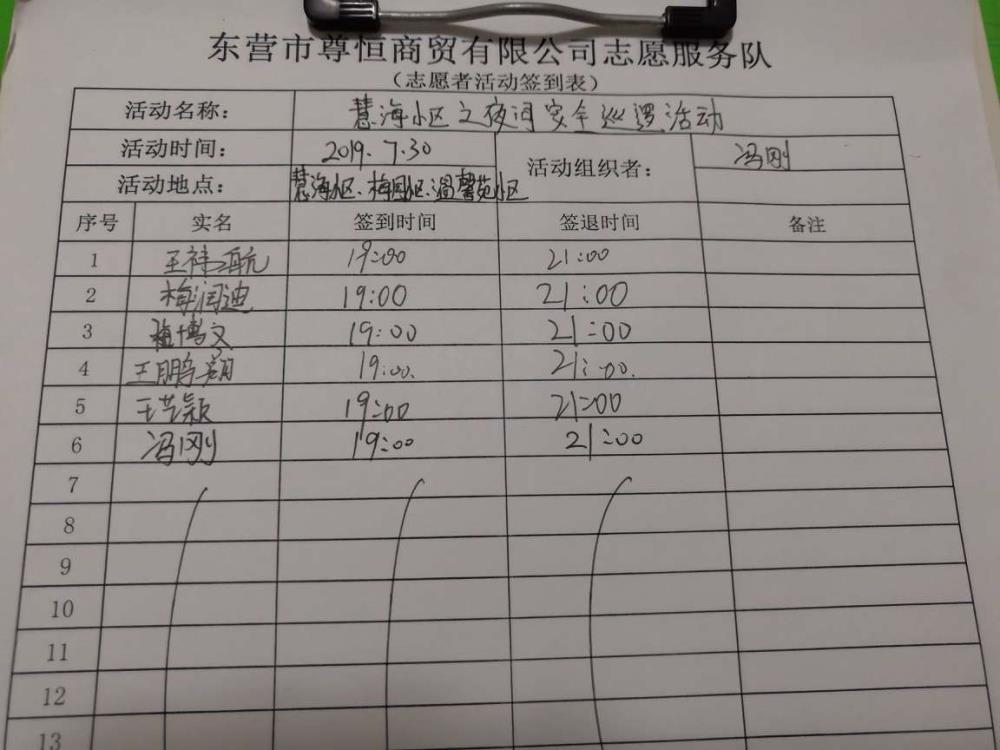 东营市尊恒商贸有限公司志愿服务队
（志愿者活动签到表）
活动名称： 慧海小区之夜间安全巡逻活动
活动时间： 2019.7.30 活动组织者： 冯刚
活动地点： 慧海小区、梅园小区、温馨苑小区
序号 实名 签到时间 签退时间 备注
1 王祥航 19:00 21:00
2 梅润迪 19:00 21:00
3 博文 19:00 21:00
4 王鹏翔 19:00. 21:00.
5 王艺颖 19:00 21:00
6 冯刚 19:00 21:00
7
8
9
10
11
12
13